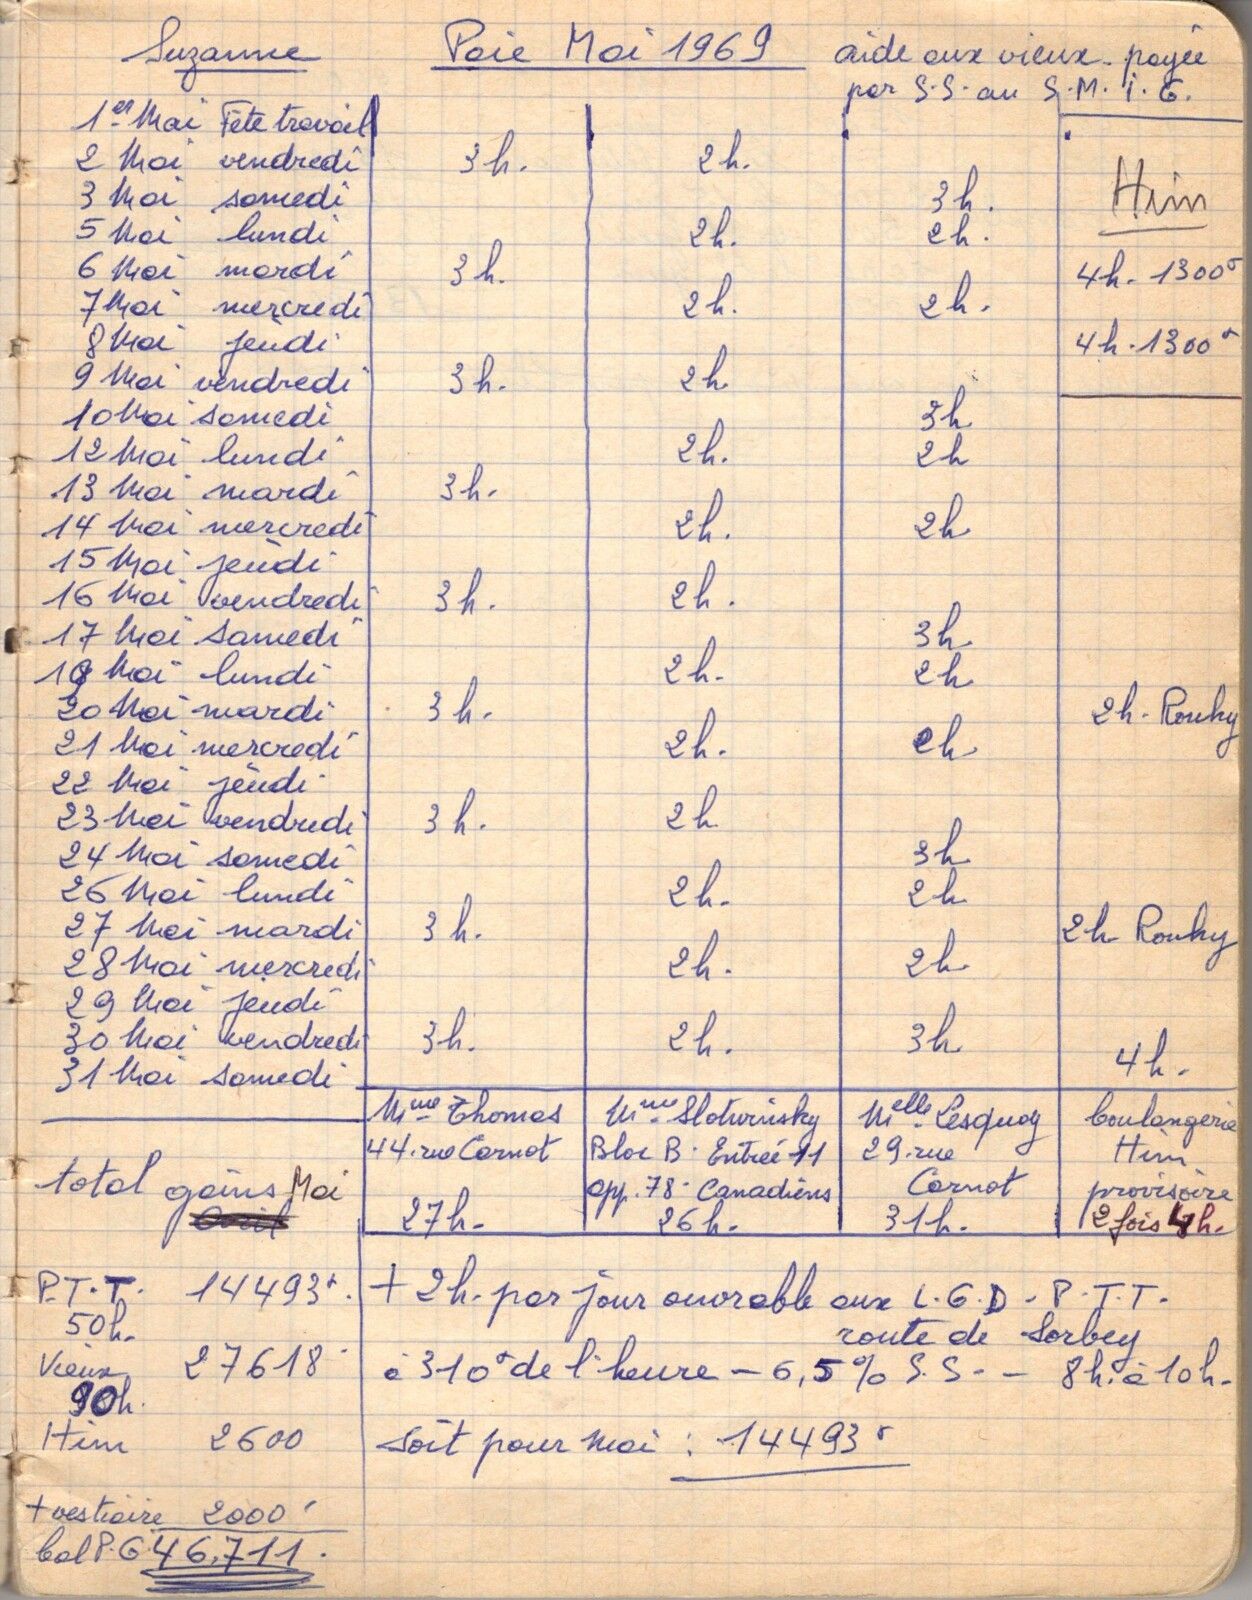 Suzanne Paie Mai 1969 aide aux vieux - payée
par S.S. au S.M.I.G.
1er Mai Fête travail
2 Mai vendredi 3h. 2h.
Him
3 Mai samedi 3h.
5 Mai lundi 2h. 2h.
6 Mai mardi 3h. 4h. 1300
7 Mai mercredi 2h. 2h.
8 Mai jeudi 4h. 1300
9 Mai vendredi 3h. 2h.
10 Mai samedi 3h
12 Mai lundi 2h. 2h
13 Mai mardi 3h.
14 Mai mercredi 2h. 2h
15 Mai jeudi
16 Mai vendredi 3h. 2h.
17 Mai samedi 3h
19 Mai lundi 2h. 2h
20 Mai mardi 3h. 2h. Rouhy
21 Mai mercredi 2h. 2h
22 Mai jeudi
23 Mai vendredi 3h. 2h
24 Mai samedi 3h
26 Mai lundi 2h. 2h
27 Mai mardi 3h. 2h Rouhy
28 Mai mercredi 2h. 2h
29 Mai jeudi
30 Mai vendredi 3h. 2h. 3h
31 Mai samedi 4h.
Mme Thomas
44. rue Carnot
27h.
Mme Slotwinsky
Bloc B. Entrée 11
app. 78 - Canadiens
26h.
Melle Lesquoy
29. rue
Carnot
31h.
boulangerie
Him
provisoire
2 fois 4h.
total gains Mai
Avril
P.T.T. 14493.
50h.
Vieux 27618
90h.
Him 2600
+ vestiaire 2000
bal P.G 46.711.
+ 2h. par jour ouvrable aux L.G.D - P.T.T.
route de Sorbey
à 310 de l'heure - 6,5% S.S. - 8h. à 10h.
soit pour Mai : 14493